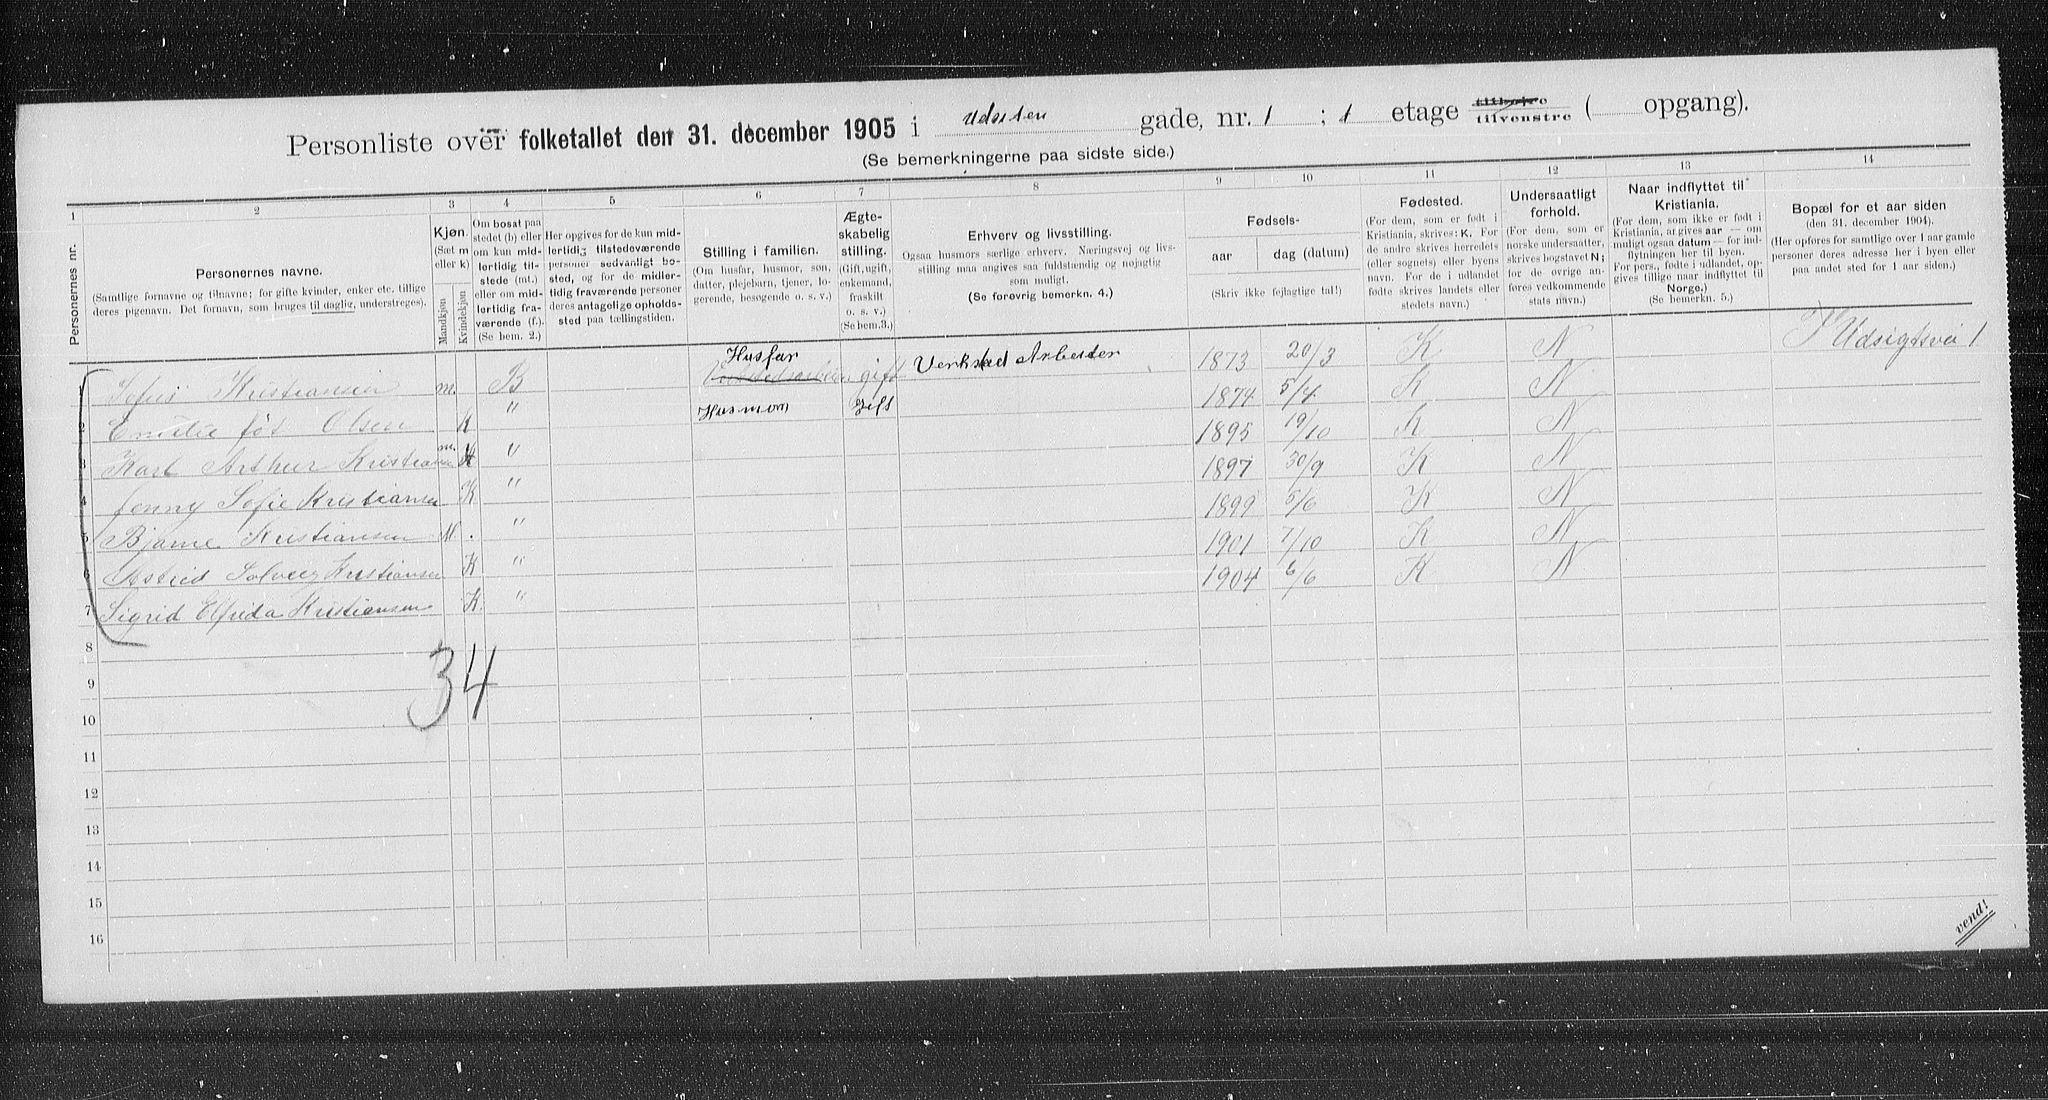 Personliste over folketallet den 31. december 1905 i Udsiten gade, nr. 1 ; 1 etage tilhøire tilvenstre ( opgang).
(Se bemerkningerne paa sidste side.)
1 2 3 4 5 6 7 8 9 10 11 12 13 14
Personernes nr.
Personernes navne.
(Samtlige fornavne og tilnavne; for gifte kvinder, enker etc. tillige
deres pigenavn. Det fornavn, som bruges til daglig, understreges).
Kjøn.
(Sæt m
eller k)
Mandkjøn
Kvindekjøn
Om bosat paa
stedet (b) eller
om kun mid-
lertidig til-
stede (mt.)
eller om mid-
lertidig fra-
værende (f.).
(Se bem. 2.)
Her opgives for de kun mid-
lertidig tilstedeværende
personer sedvanligt bo-
sted, og for de midler-
tidig fraværende personer
deres antagelige opholds-
sted paa tællingstiden.
Stilling i familien.
(Om husfar, husmor, søn,
datter, plejebarn, tjener, lo-
gerende, besøgende o. s. v.)
Ægte-
skabelig
stilling.
(Gift, ugift,
enkemand,
fraskilt
o. s. v.)
(Se bem.3.)
Erhverv og livsstilling.
Ogsaa husmors særlige erhverv. Næringsvej og livs-
stilling maa angives saa fuldstændig og nøjagtig
som muligt.
(Se forøvrig bemerkn. 4.)
Fødsels-
aar dag (datum)
(Skriv ikke fejlagtige tal!)
Fødested.
(For dem, som er født i
Kristiania, skrives: K. For
de andre skrives herredets
(eller sognets) eller byens
navn. For de i udlandet
fødte skrives landets eller
stedets navn.)
Undersaatligt
forhold.
(For dem, som er
norske undersaatter,
skrives bogstavet N;
for de øvrige an-
føres vedkommende
stats navn.)
Naar indflyttet til
Kristiania.
(For dem, som ikke er født i
Kristiania, angives aar — om
muligt ogsaa datum — for ind-
flytningen her til byen.
For pers., fødte i udlandet, op-
gives tillige naar indflyttet til
Norge.)
(Se bemerkn. 5.)
Bopæl for et aar siden
(den 31. december 1904).
(Her opføres for samtlige over 1 aar gamle
personer deres adresse her i byen eller
paa andet sted for 1 aar siden.)
1 Kristiansen m. B Husfar gift Verksted Arbeider 1873 20/3 K N Udsigtsvei 1
2 Emilie föt Olsen K " Husmor gift 1874 5/4 K N
3 Karl Arthur Kristiansen m. " 1895 19/10 K N
4 Jenny Sofie Kristiansen K " 1897 30/9 K N
5 Bjarne Kristiansen M " 1899 5/6 K N
6 Astrid Solveig Kristiansen K " 1901 7/10 K N
7 Sigrid Elfrida Kristiansen K. " 1904 6/6 K N
8
34
9
10
11
12
13
14
15
16
vend!